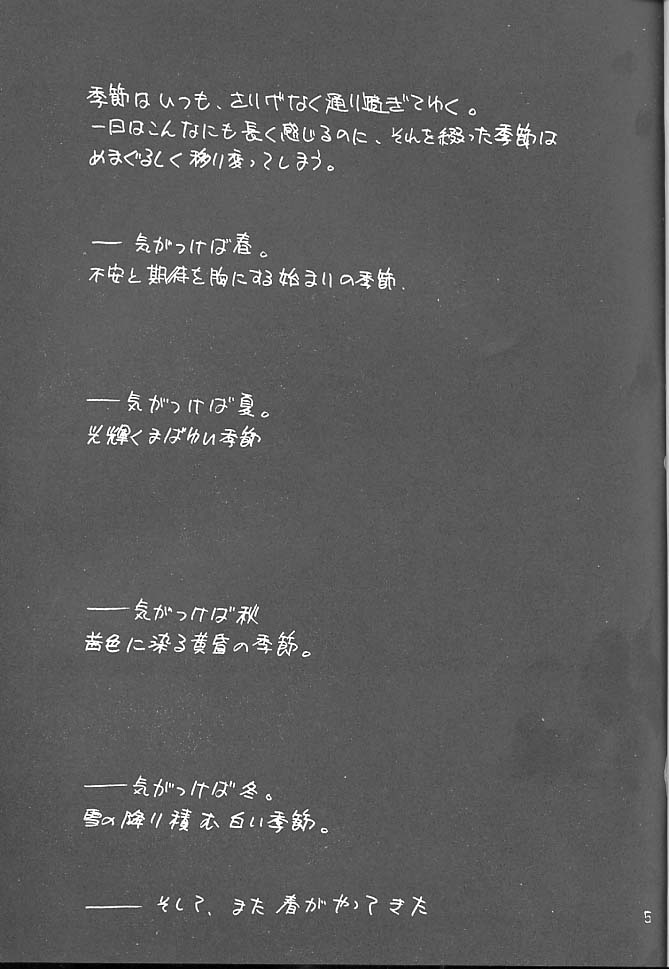 季節はいつも、さりげなく通り過ぎてゆく。
一日はこんなにも長く感じるのに、それを綴った季節は
めまぐるしく移り変ってしまう。
── 気がつけば春。
不安と期待を胸にする始まりの季節.
──気がつけば夏。
光輝くまばゆい季節
──気がつけば秋
茜色に染る黄昏の季節。
──気がつけば冬。
雪の降り積む白い季節。
── そして、また春がやってきた
5